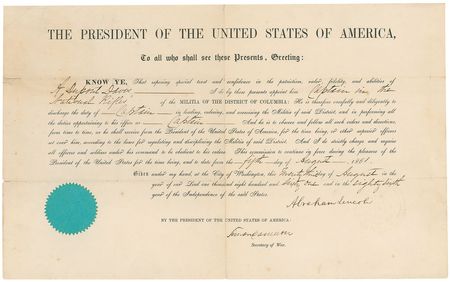 THE PRESIDENT OF THE UNITED STATES OF AMERICA,
To all who shall see these Presents, Greeting:
KNOW YE, That reposing special trust and confidence in the patriotism, valor, fidelity, and abilities of
I do by these presents appoint him Captain in the
National Rifles of the MILITIA OF THE DISTRICT OF COLUMBIA: He is therefore carefully and diligently to
discharge the duty of Captain in leading, ordering, and exercising the Militia of said District, and in performing all
the duties appertaining to his office as Captain And he is to observe and follow all such orders and directions,
from time to time, as he shall receive from the President of the United States of America, for the time being, or other superior officers
set over him, according to the laws for regulating and disciplining the Militia of said District. And I do strictly charge and require
all officers and soldiers under his command to be obedient to his orders. This commission to continue in force during the pleasure of the
President of the United States for the time being, and to date from the fifth day of August 1861
Given under my hand, at the City of Washington, this day of August in the
year of our Lord one thousand eight hundred and Sixty One and in the eighty sixth
year of the Independence of the said States.
Abraham Lincoln
BY THE PRESIDENT OF THE UNITED STATES OF AMERICA:
Simon Cameron
Secretary of War.